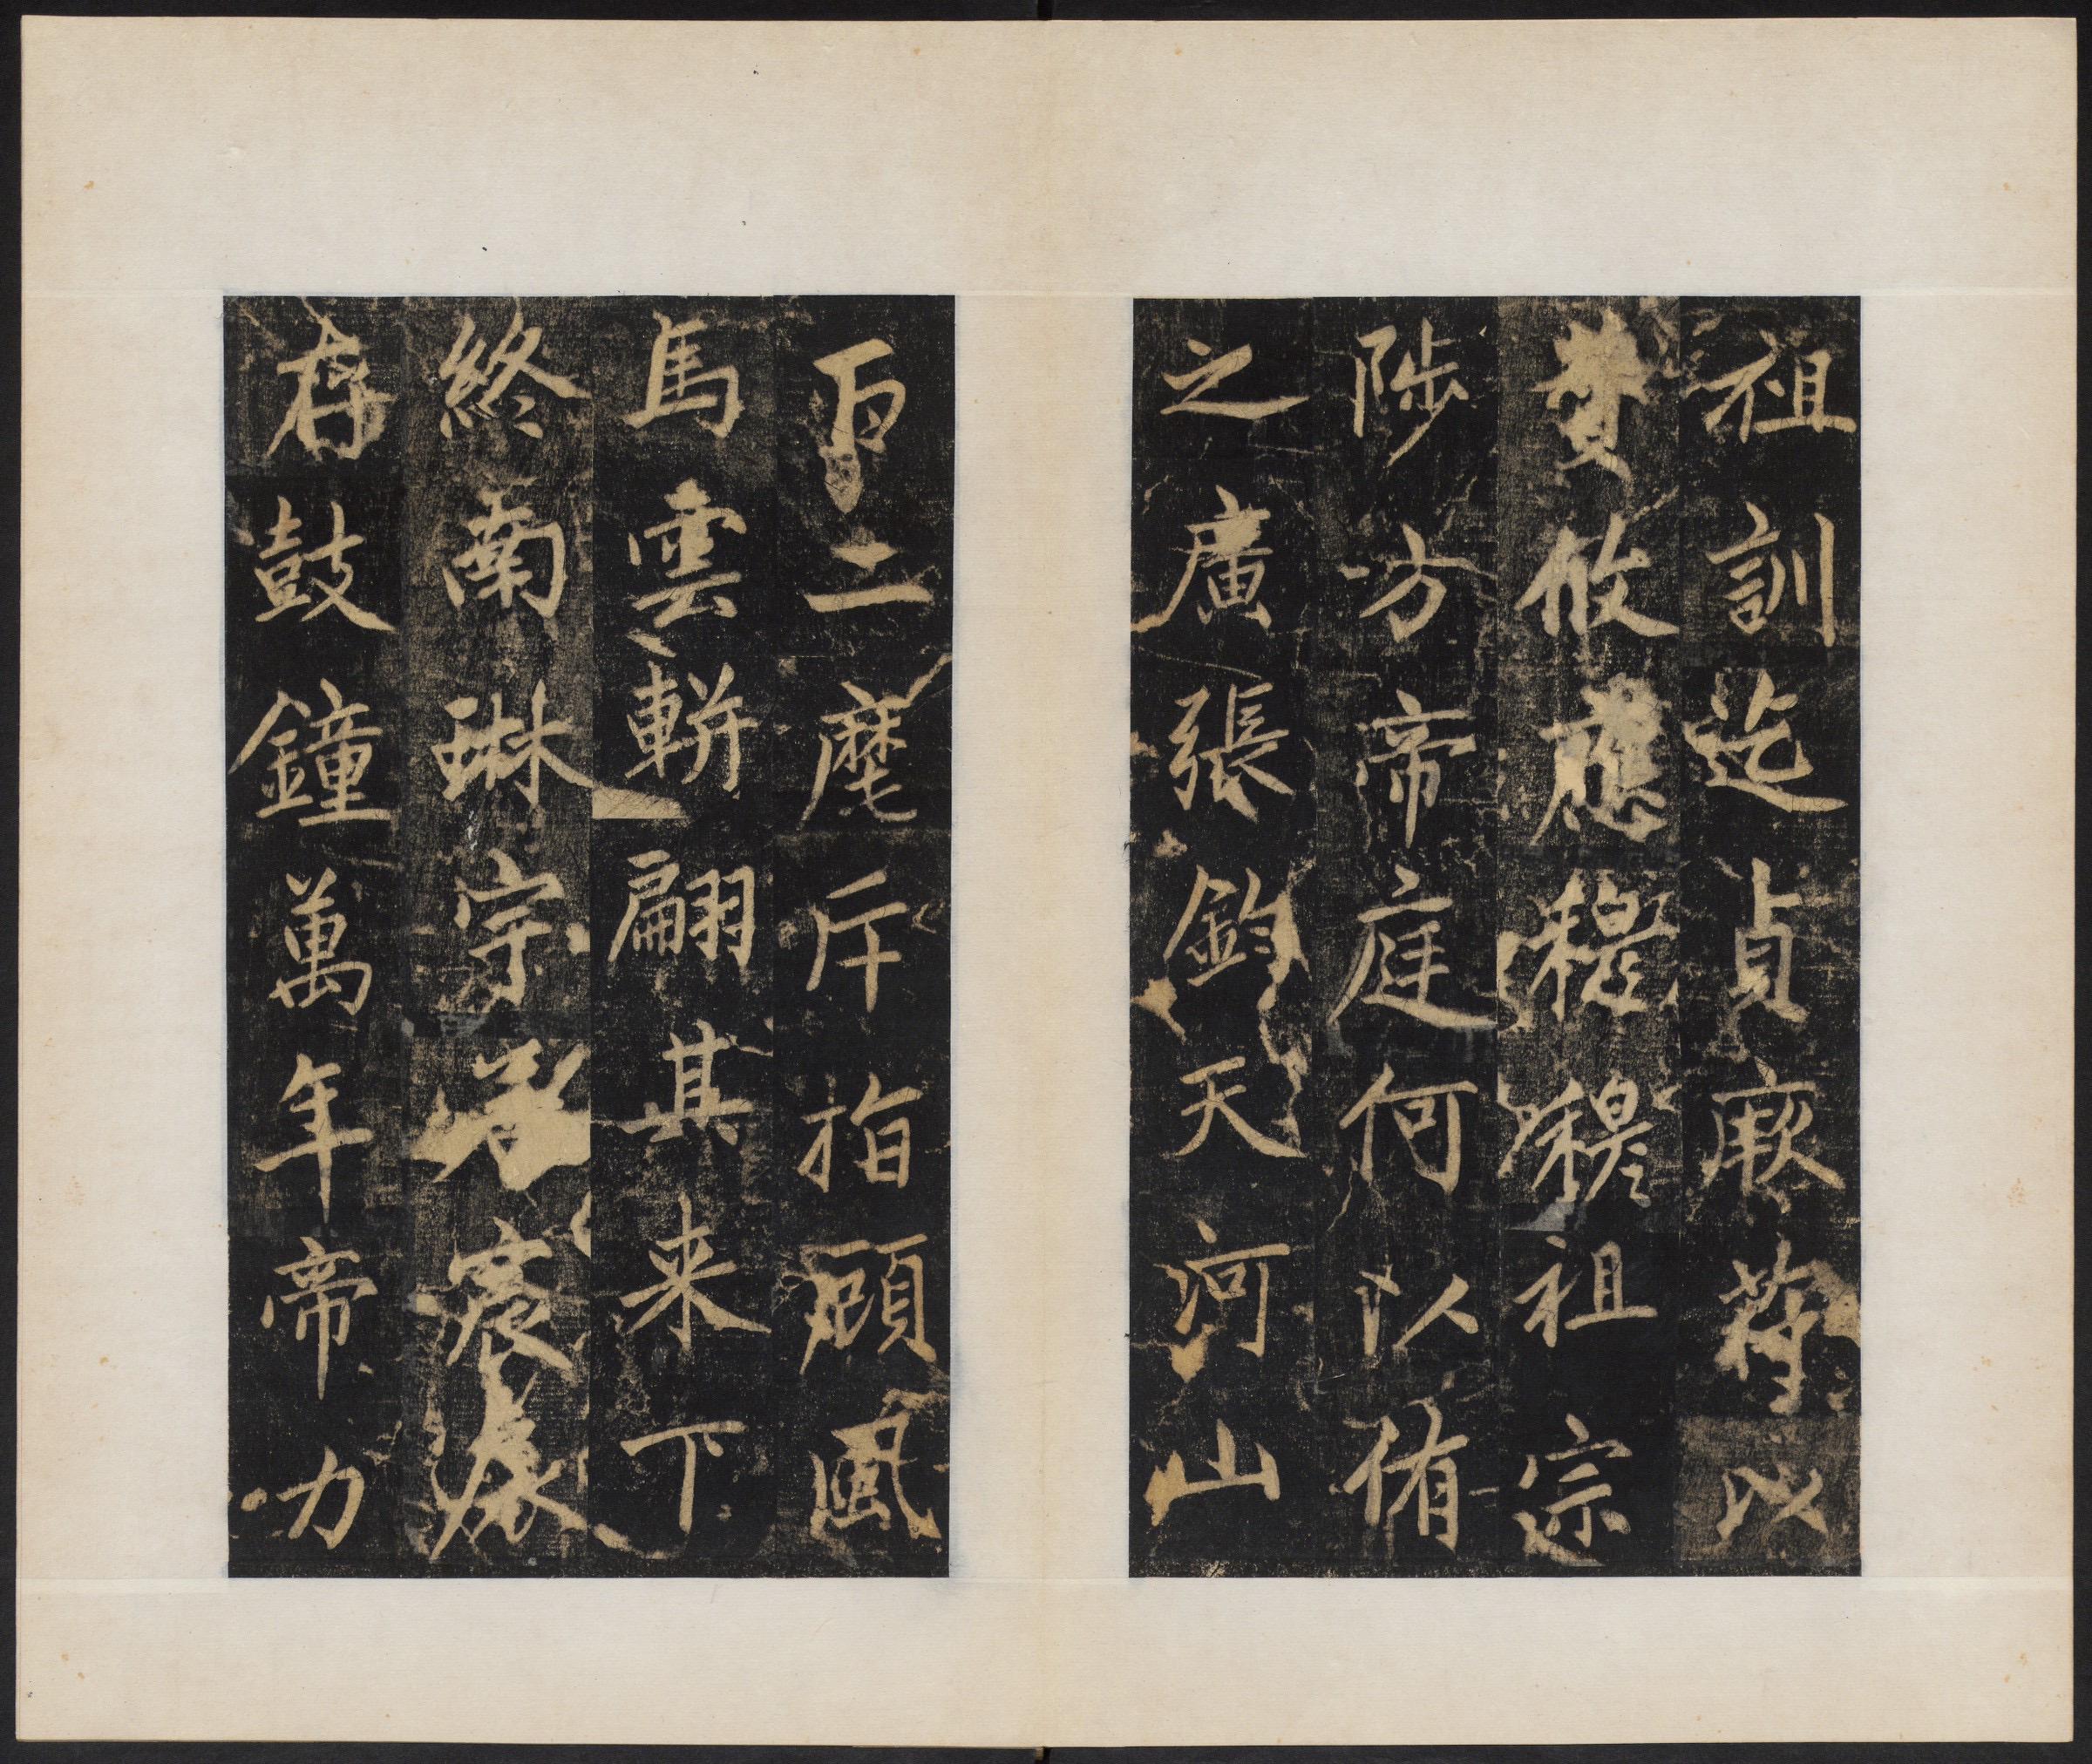 祖訓迄貞厥符以
攸應穆穆祖宗
陟方帝庭何以侑
之廣張鈞天河山
百二麾斥指顧風
馬雲軿翩其来下
終南琳宇
鼓鐘萬年帝力